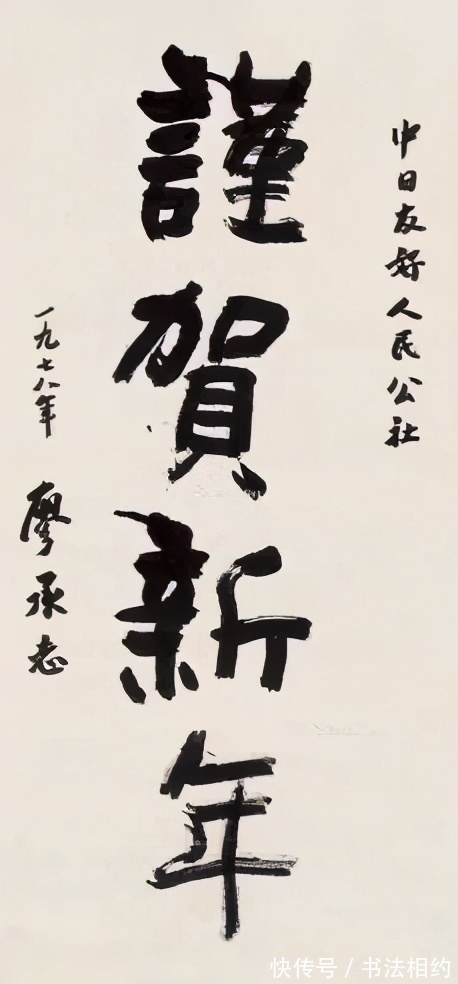 中日友好人民公社
謹賀新年
一九七八年
廖承志
快传号/书法相约